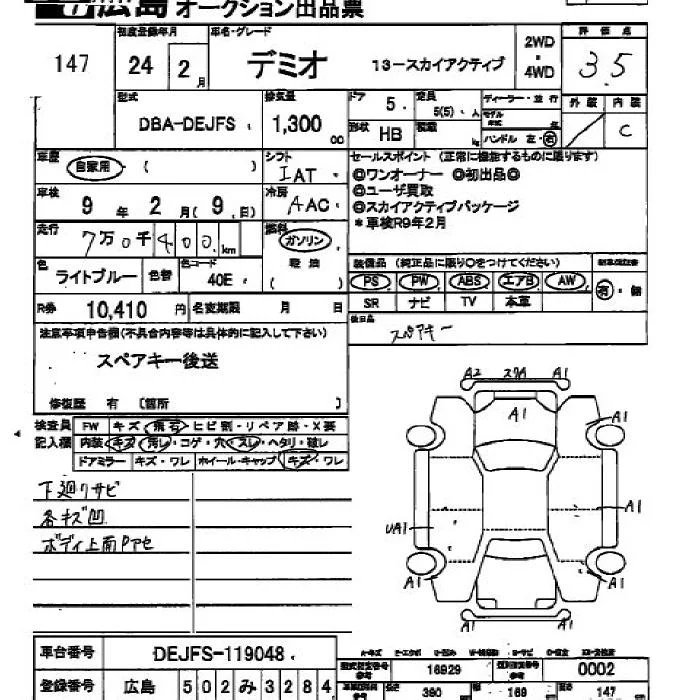 広島 オークション出品票
147
初度登録年月
24 2月
車名・グレード
デミオ 13-スカイアクティブ
2WD
・
4WD
評価点
3.5
型式
DBA-DEJFS
排気量
1,300 cc
ドア 5
定員 5(5) 人
形状 HB
積載 kg
ディーラー・並行
モデル年式 年
ハンドル 左・右
外装 内装
C
車歴 自家用 ( )
シフト IAT
車検 9年 2月(9日)
冷房 AAC
走行 7万0千400km
燃料 ガソリン
軽油
( )
色 ライトブルー 色替 色コード 40E
R券 10,410円 名変期限 月 日
セールスポイント(正常に機能するものに限ります)
◎ワンオーナー ◎初出品◎
◎ユーザ買取
◎スカイアクティブパッケージ
*車検R9年2月
装備品(純正品に限り○をつけてください)
PS PW ABS エアB AW
SR ナビ TV 本革
新車保証書
有・無
後日品
スペアキー
注意事項申告欄(不具合内容等は具体的に記入して下さい)
スペアキー後送
修復歴 有 〔箇所 〕
検査員記入欄
FW キズ・飛石・ヒビ割・リペア跡・X要
内装 キズ・汚レ・コゲ・穴・スレ・ヘタリ・破レ
ドアミラー キズ・ワレ ホイール・キャップ キズ・ワレ
下廻りサビ
各キズ凹
ボディ上面Pアセ
A2 スクA A1
A1
A1
A1
A1
UA1
A1
A1
A1
車台番号 DEJFS-119048
登録番号 広島 502み3284
型式指定番号 参考 16929
類別区分番号 参考 0002
長さ 390 幅 169 高さ 147